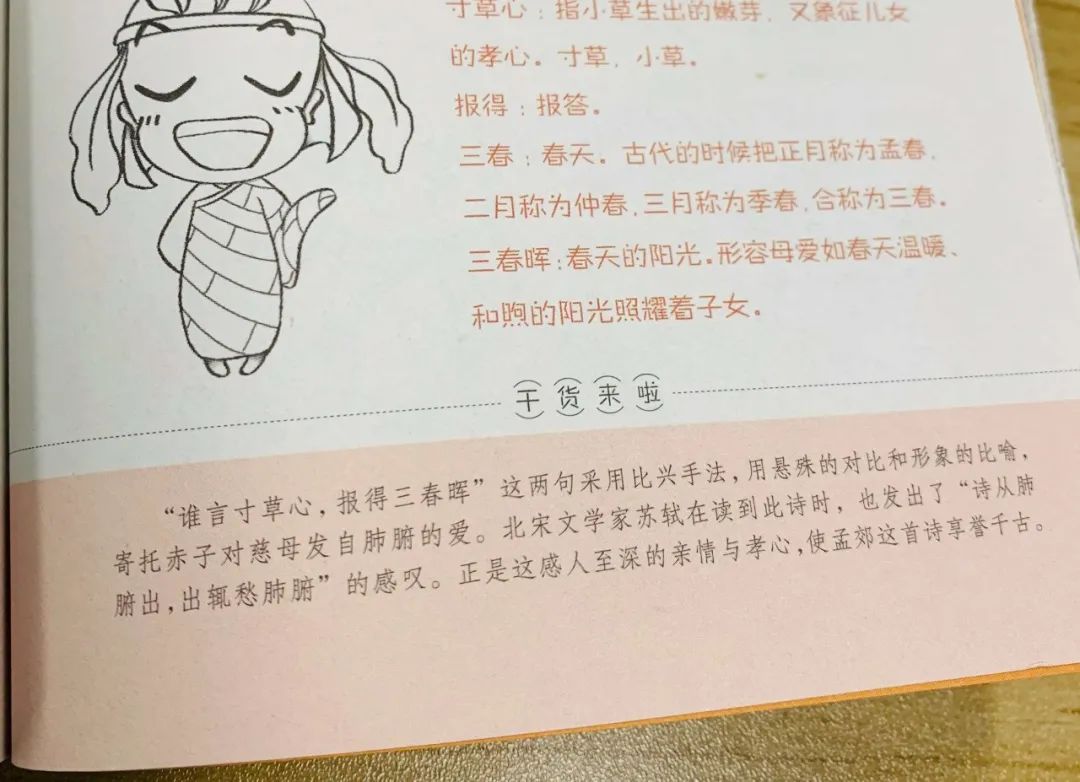 寸草心：指小草生出的嫩芽，又象征儿女
的孝心。寸草，小草。
报得：报答。
三春：春天。古代的时候把正月称为孟春，
二月称为仲春，三月称为季春，合称为三春。
三春晖：春天的阳光。形容母爱如春天温暖、
和煦的阳光照耀着子女。
干货来啦
“谁言寸草心，报得三春晖”这两句采用比兴手法，用悬殊的对比和形象的比喻，
寄托赤子对慈母发自肺腑的爱。北宋文学家苏轼在读到此诗时，也发出了“诗从肺
腑出，出辄愁肺腑”的感叹。正是这感人至深的亲情与孝心，使孟郊这首诗享誉千古。